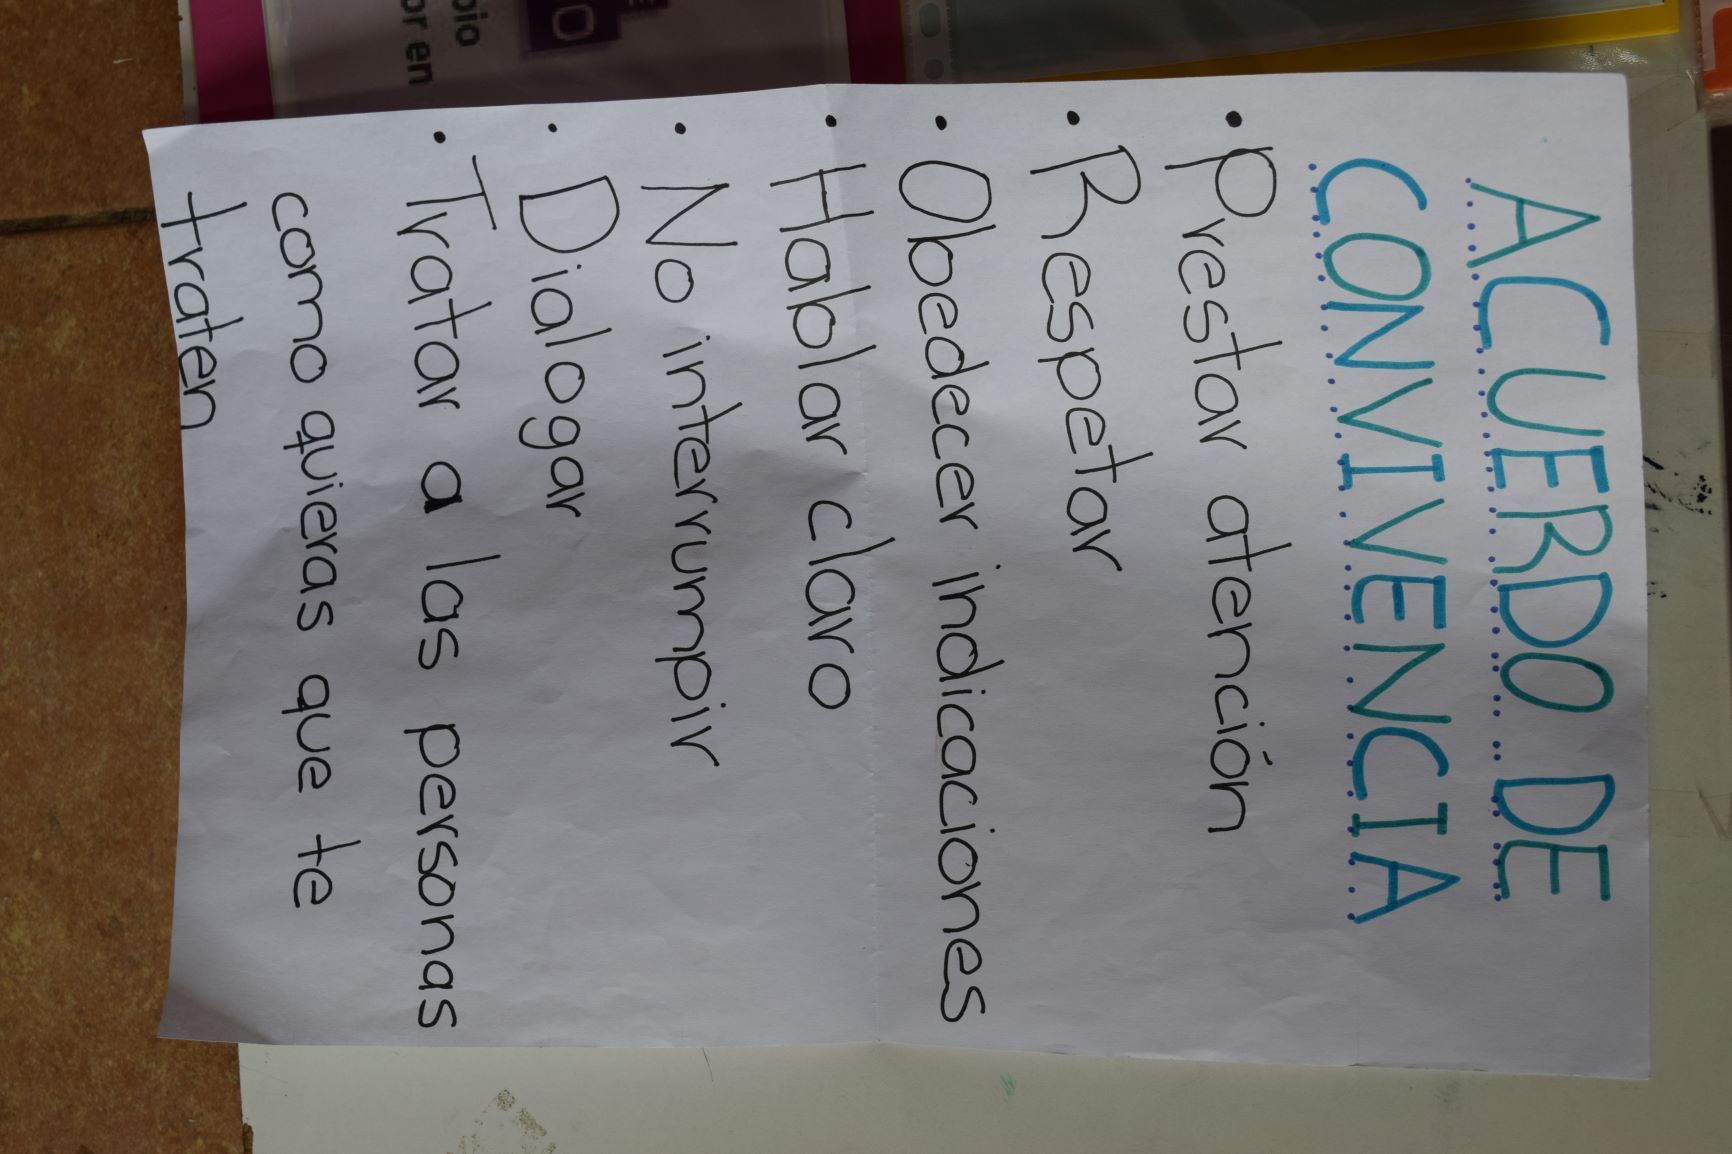 ACUERDO DE
CONVIVENCIA
• Prestar atención
• Respetar
• Obedecer indicaciones
• Hablar claro
• No interrumpir
• Dialogar
• Tratar a las personas
como quieras que te
traten